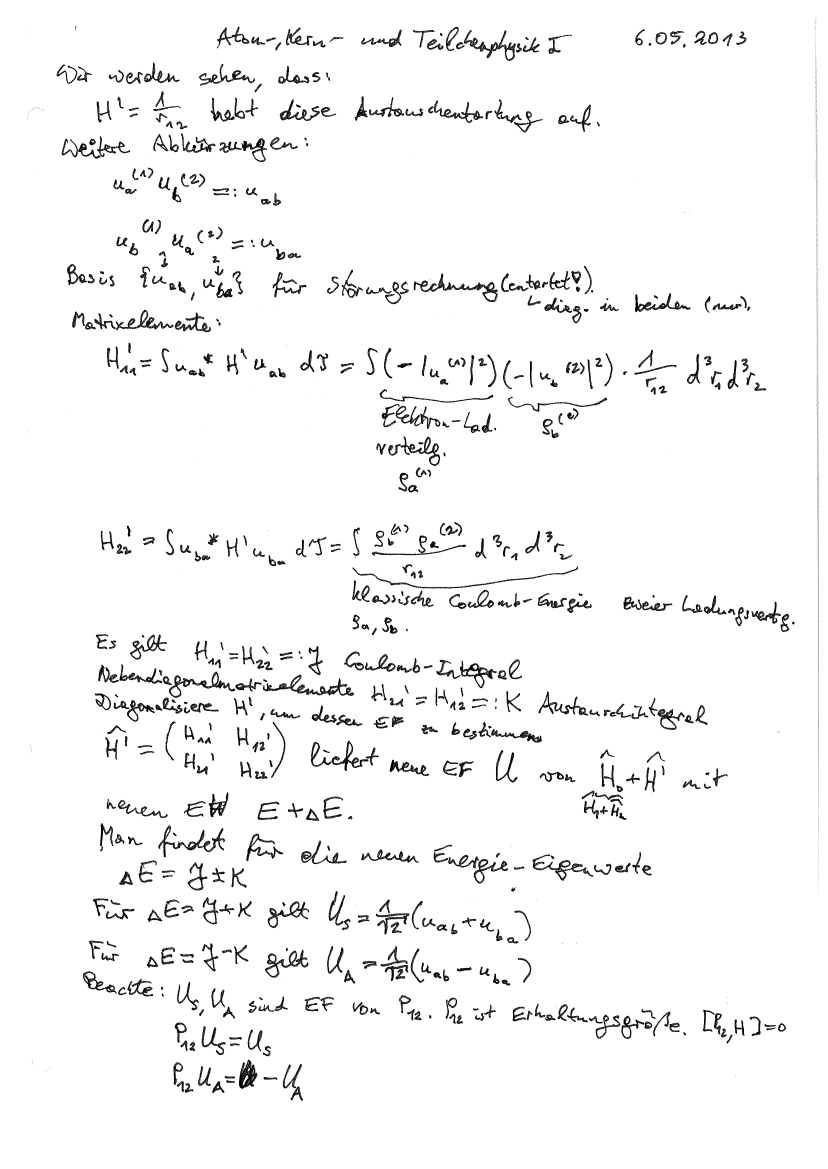 Atom-, Kern- und Teilchenphysik I 6.05.2013
Wir werden sehen, dass:
H' = 1/r₁₂ hebt diese Austauschentartung auf.
Weitere Abkürzungen:
u_a^(1) u_b^(2) =: u_ab
u_b^(1) u_a^(2) =: u_ba
1 2
Basis {u_ab, u_ba} für Störungsrechnung (entartet!).
↳ diag. in beiden (nur).
Matrixelemente:
H₁₁' = ∫u_ab* H' u_ab dτ = ∫(-|u_a^(1)|²)(-|u_b^(2)|²) · 1/r₁₂ d³r₁ d³r₂
Elektron-Lad. ρ_b^(2)
verteilg.
ρ_a^(1)
H₂₂' = ∫u_ba* H' u_ba dτ = ∫ ρ_b^(1) ρ_a^(2)/r₁₂ d³r₁ d³r₂
klassische Coulomb-Energie zweier Ladungsvertg.
ρ_a, ρ_b.
Es gilt H₁₁' = H₂₂' =: J Coulomb-Integral
Nebendiagonalmatrixelemente H₂₁' = H₁₂' =: K Austauschintegral
Diagonalisiere H', um dessen EF zu bestimmen
Ĥ' = (H₁₁' H₁₂' / H₂₁' H₂₂') liefert neue EF U von Ĥ₀ + Ĥ' mit
Ĥ₁+Ĥ₂
neuen EW E + ΔE.
Man findet für die neuen Energie-Eigenwerte
ΔE = J ± K
Für ΔE = J + K gilt U_S = 1/√2 (u_ab + u_ba)
Für ΔE = J - K gilt U_A = 1/√2 (u_ab - u_ba)
Beachte: U_S, U_A sind EF von P₁₂. P₁₂ ist Erhaltungsgröße. [P₁₂, H] = 0
P₁₂ U_S = U_S
P₁₂ U_A = - U_A